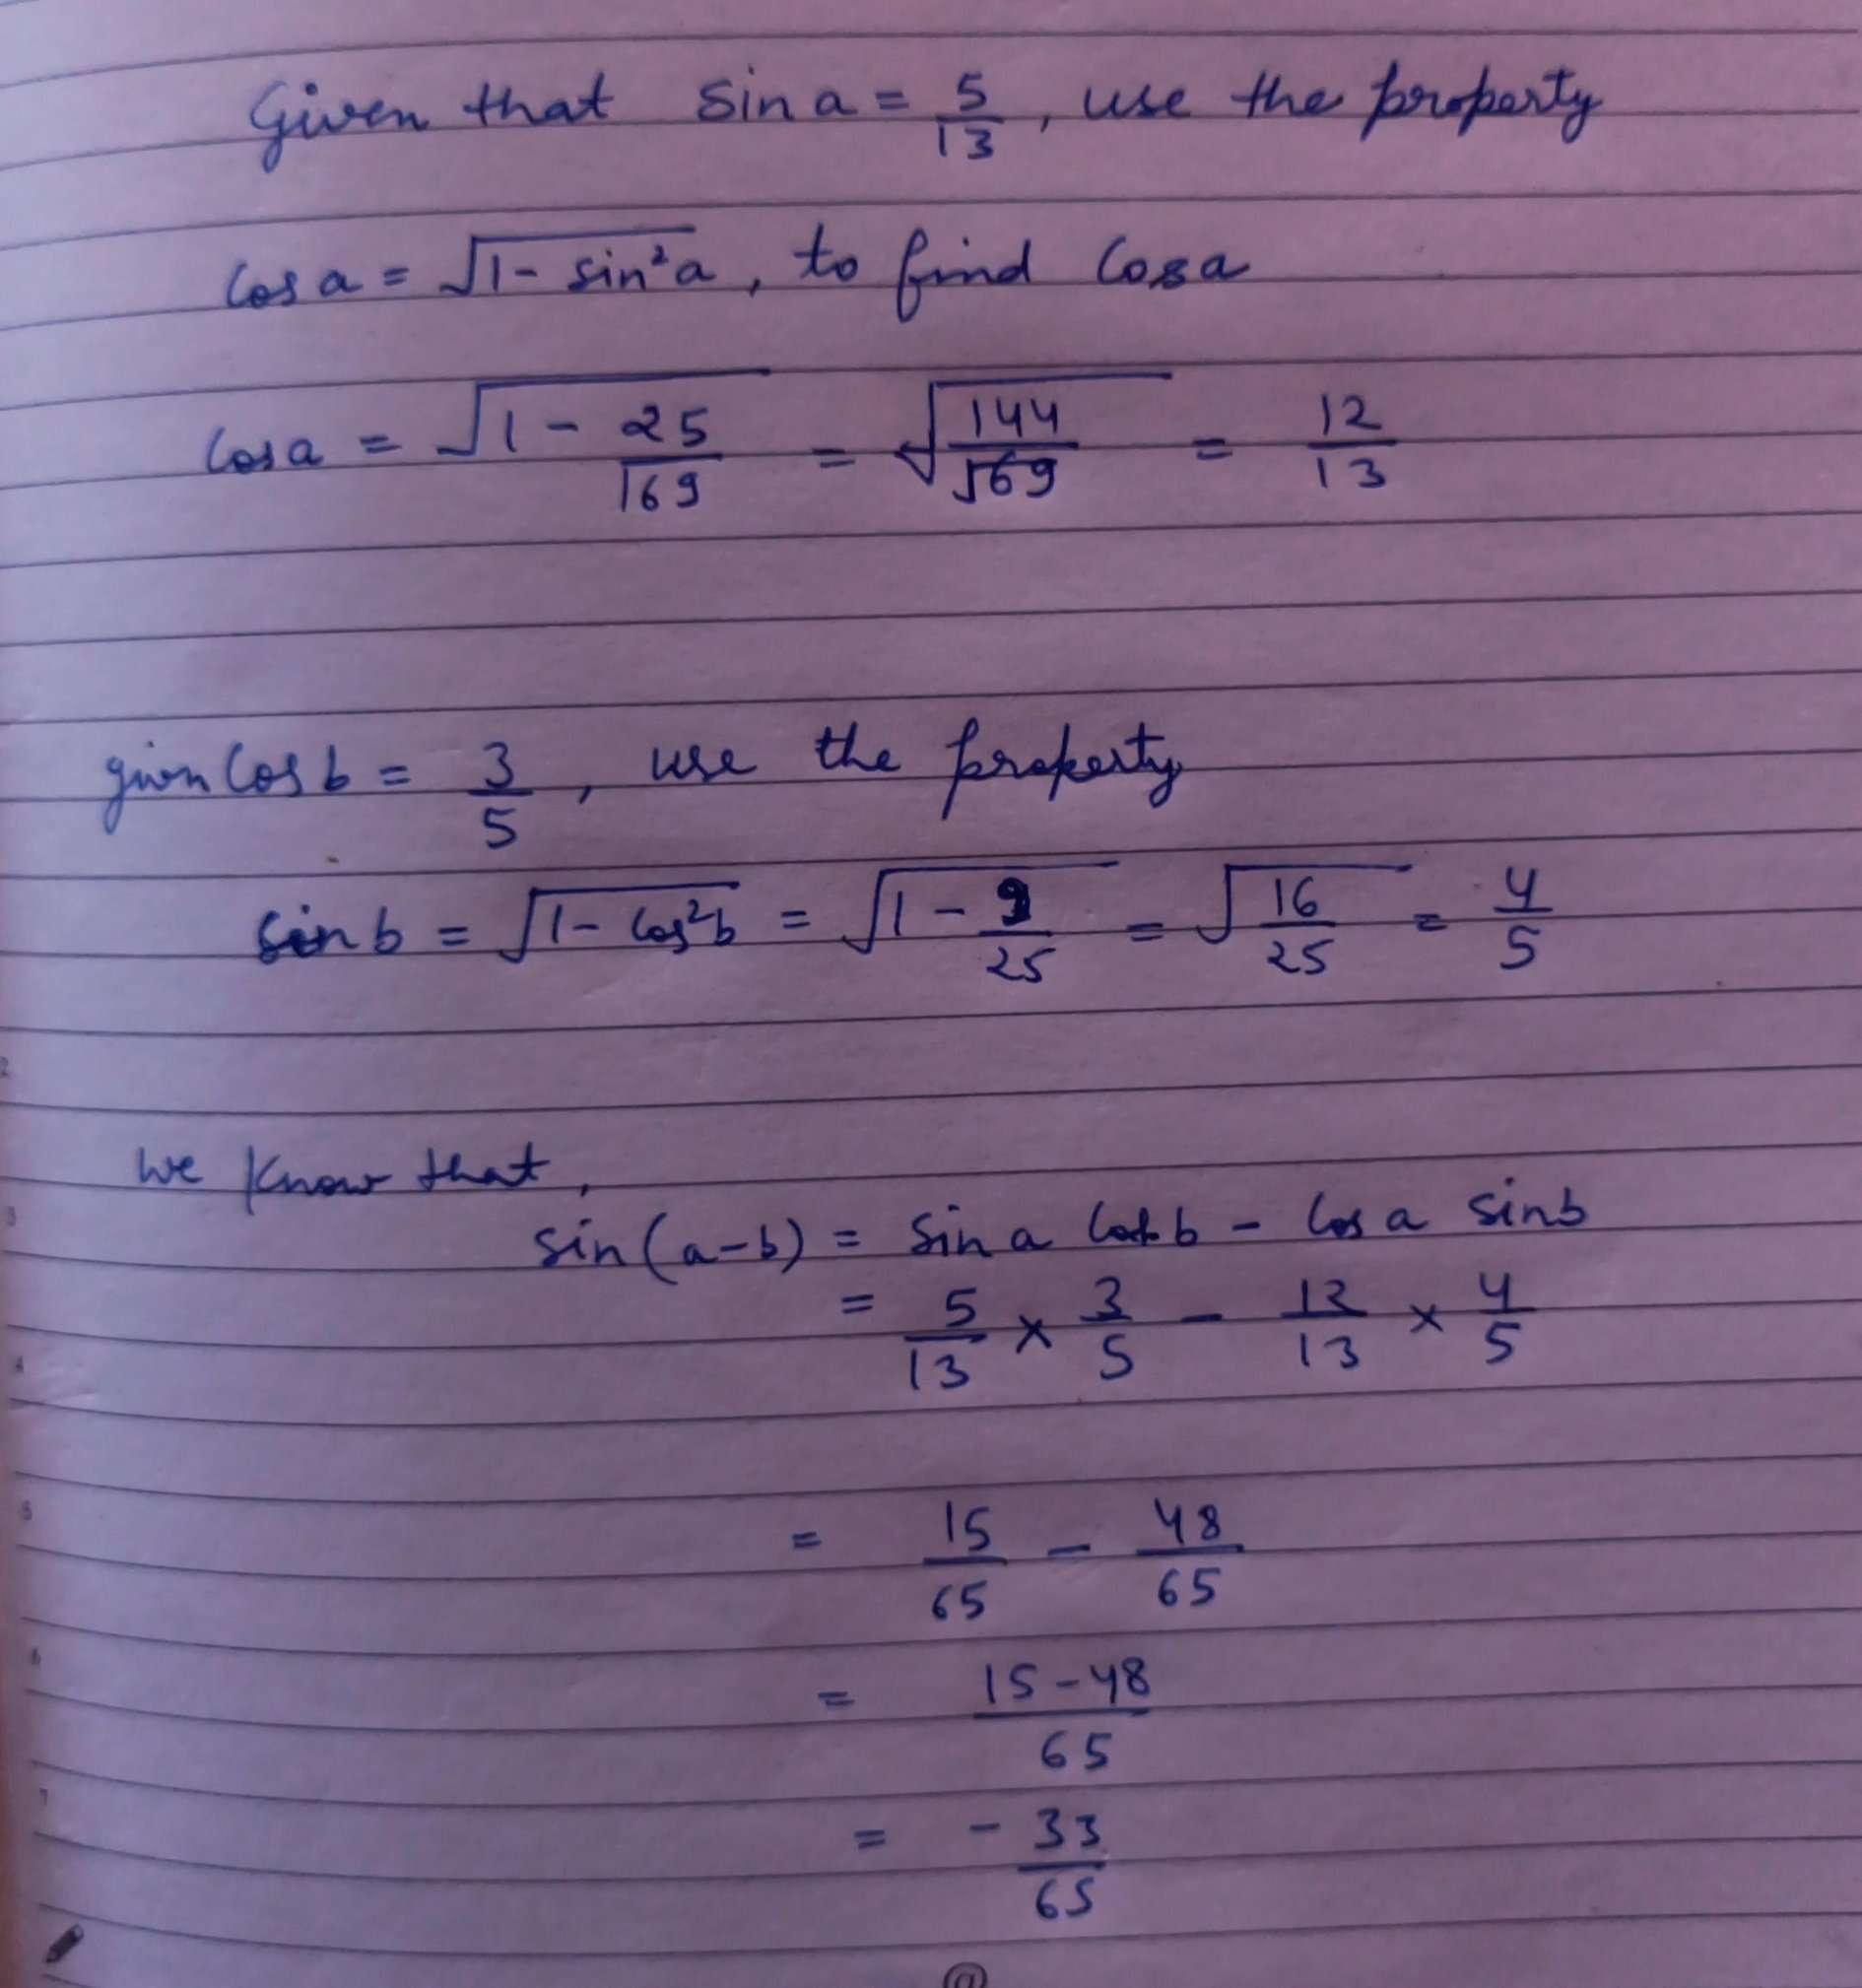 Given that sin a = 5/13, use the property
Cos a = √1 - sin²a, to find Cos a
Cos a = √1 - 25/169 = √144/169 = 12/13
given Cos b = 3/5, use the property
Sin b = √1 - Cos²b = √1 - 9/25 = √16/25 = 4/5
We Know that,
sin(a-b) = Sin a Cos b - Cos a Sinb
= 5/13 × 3/5 - 12/13 × 4/5
= 15/65 - 48/65
= 15-48/65
= - 33/65